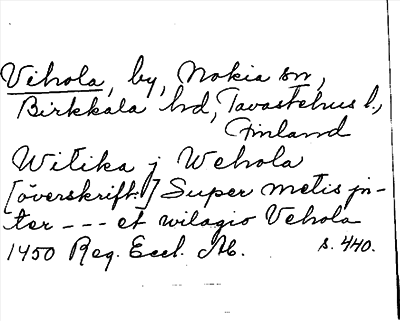 Vihola, by, Nokia sn,
Birkkala hd, Tavastehus l.,
Finland
Witika j Wehola
[överskrift:] Super metis in-
ter --- et wilagio Vehola
1450 Reg. Eccl. Ab. s. 440.